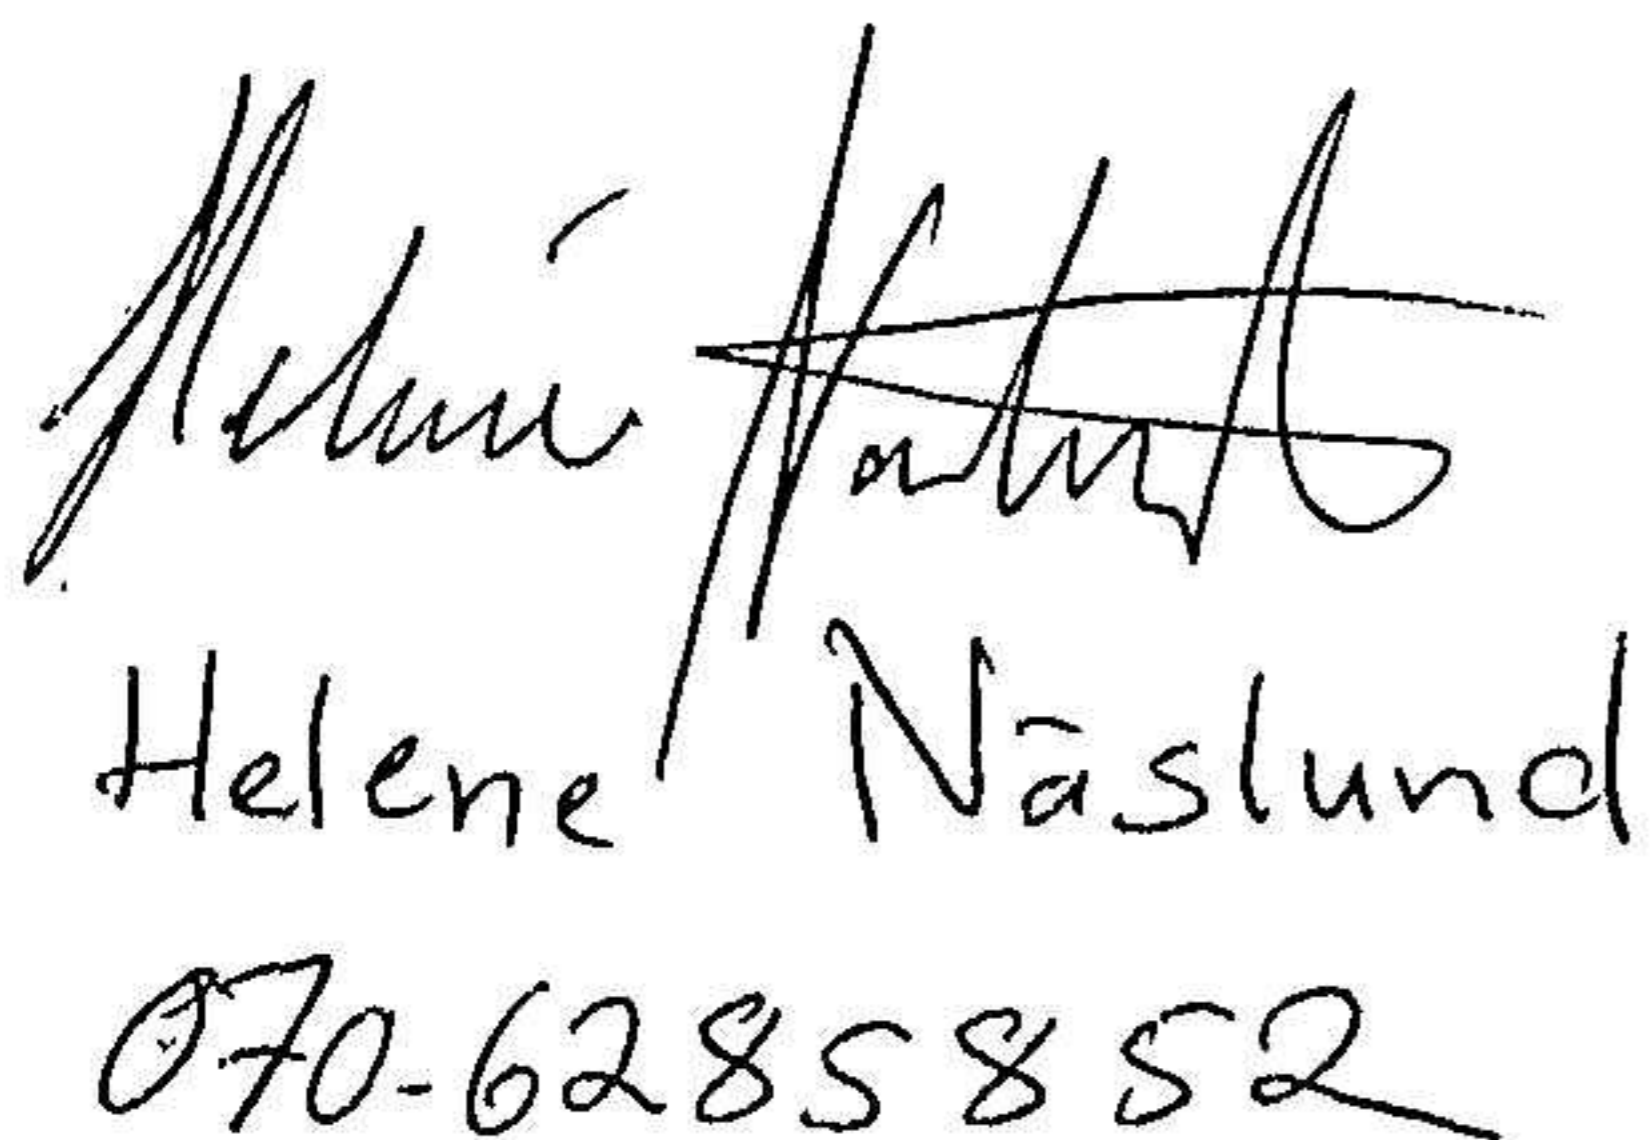 Helene Näslund
Helene Näslund
070-6285852